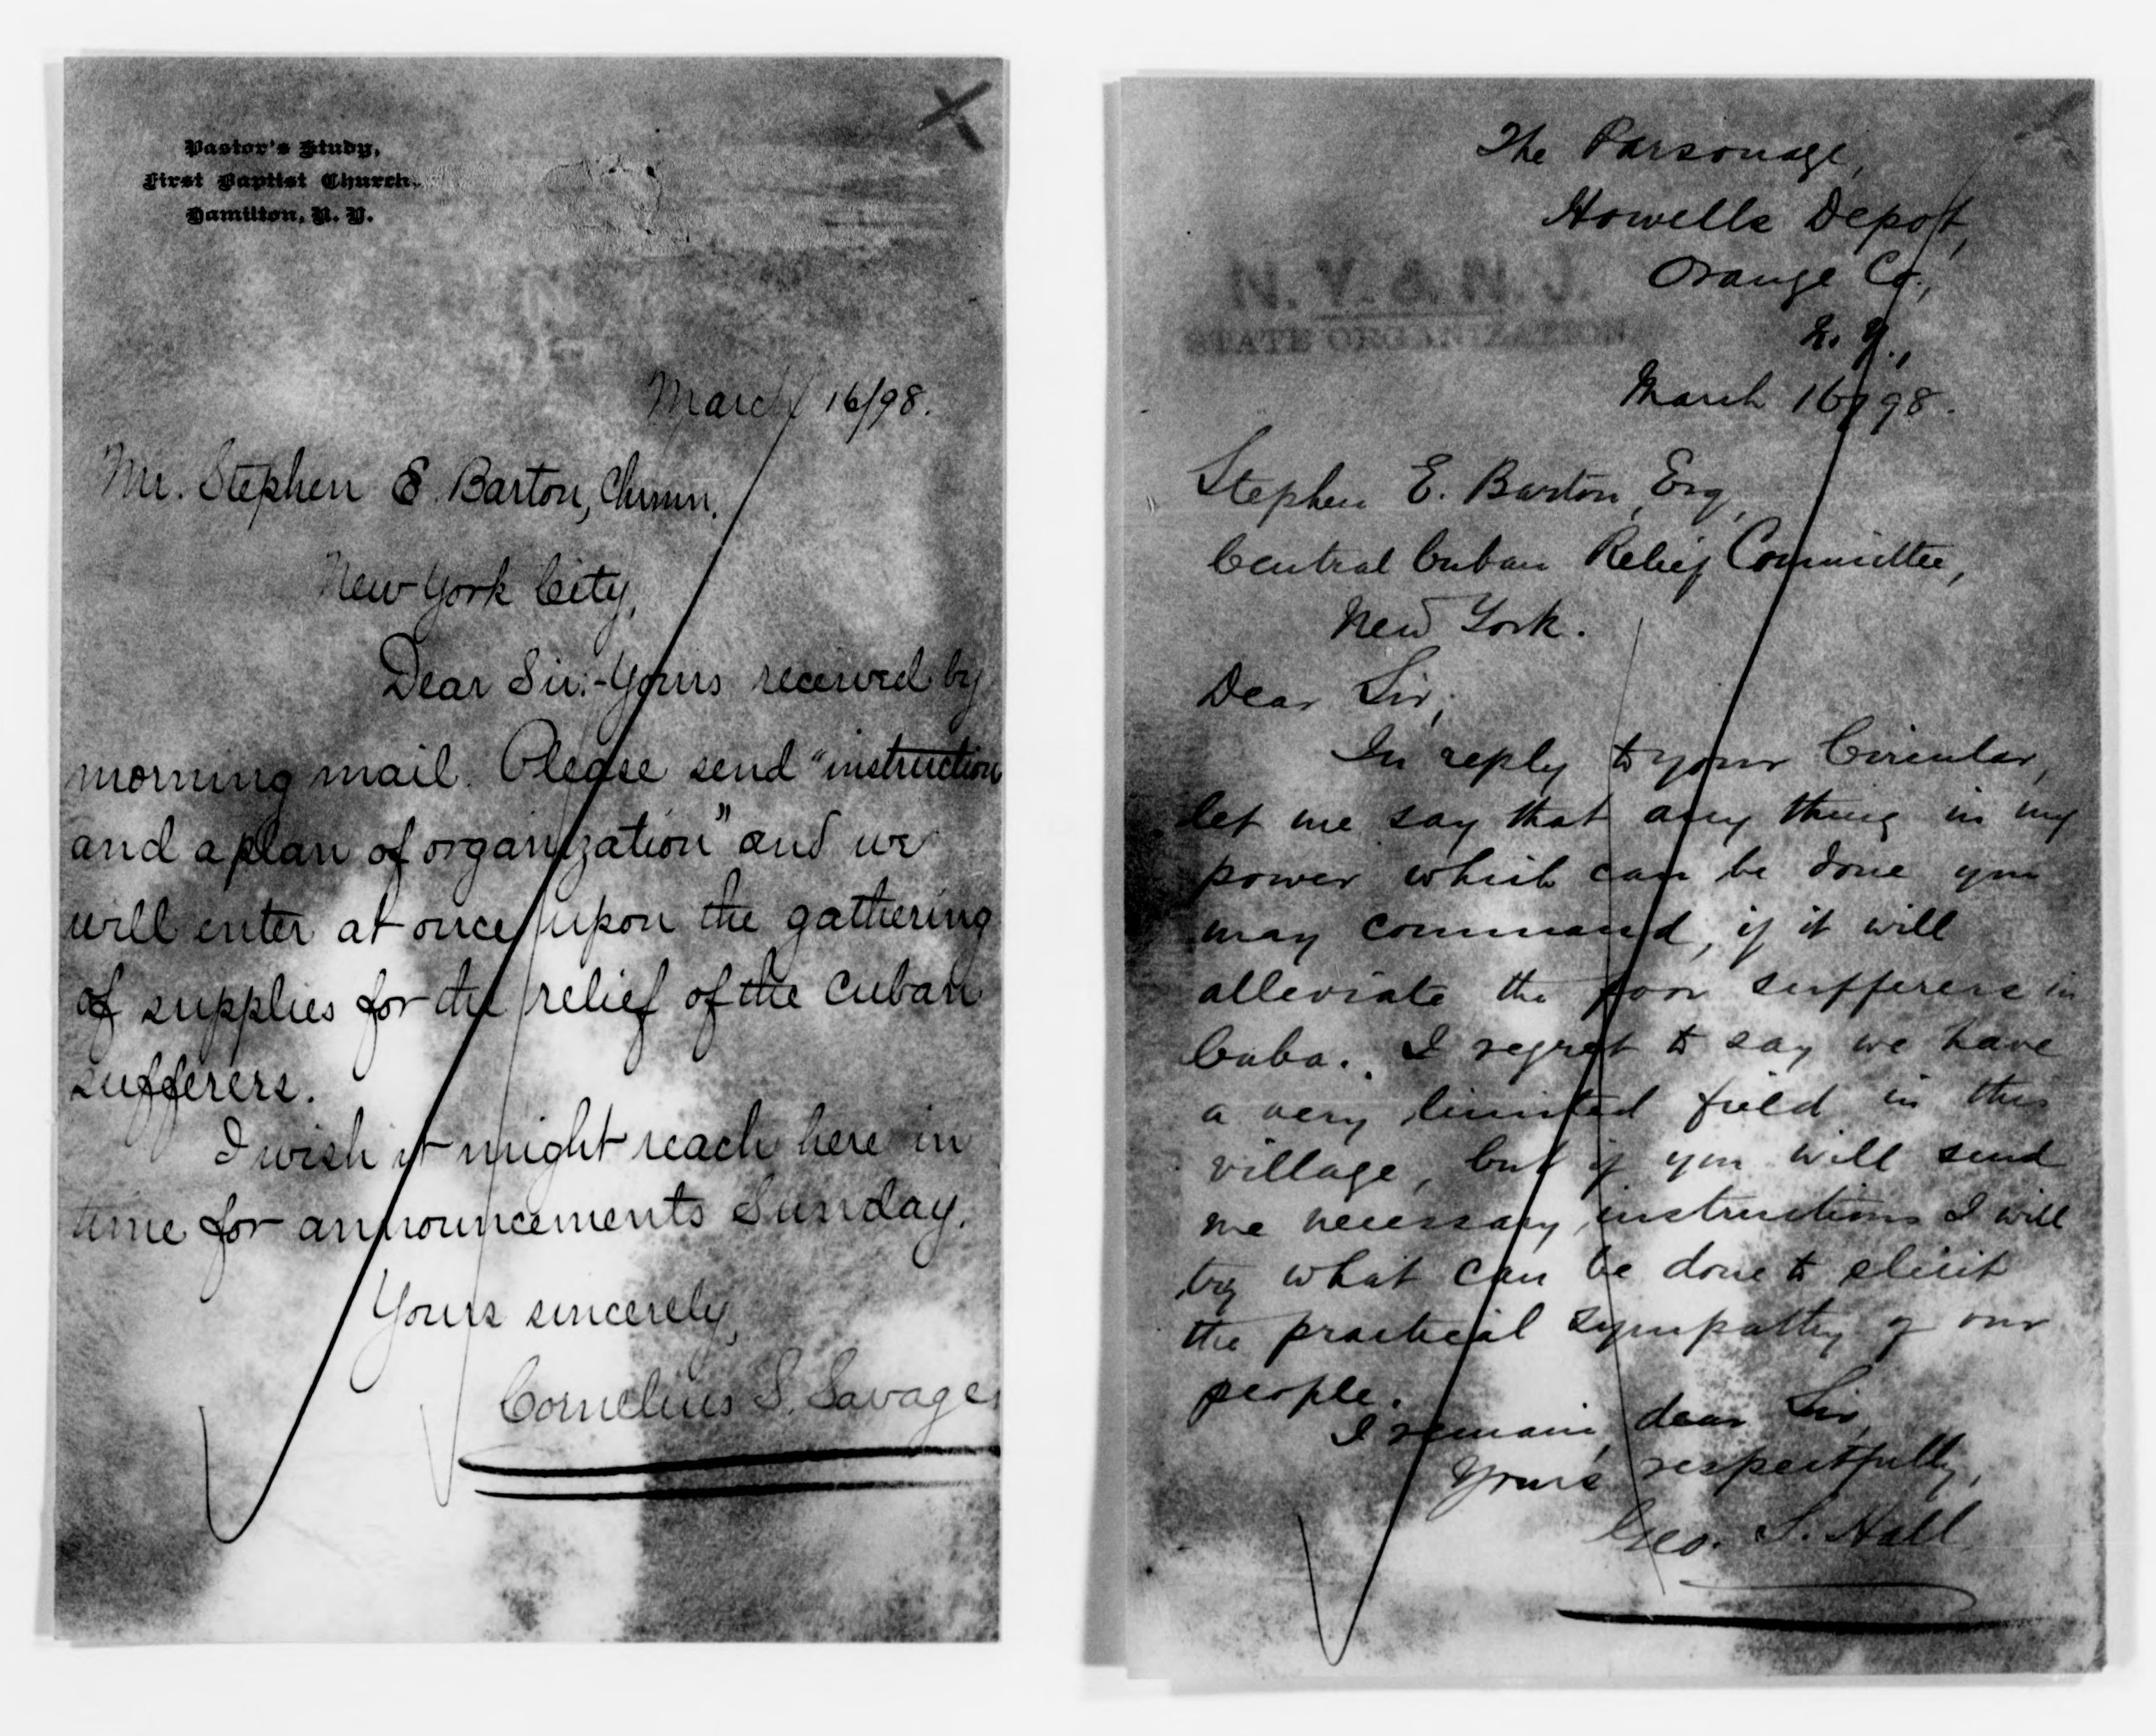 Pastor's Study,
First Baptist Church,
Hamilton, N. Y.
March 16/98.
Mr. Stephen E. Barton, Chmn.
New York City,
Dear Sir:- Yours received by
morning mail. Please send "instruction
and a plan of organization" and we
will enter at once upon the gathering
of supplies for the relief of the Cuban
sufferers.
I wish it might reach here in
time for announcements Sunday.
Yours sincerely,
Cornelius S. Savage,
The Parsonage,
Howells Depot,
Orange Co.,
N. Y.,
N. Y. & N. J.
STATE ORGANIZATION
March 16/98.
Stephen E. Barton, Esq,
Central Cuban Relief Committee,
New York.
Dear Sir;
In reply to your Circular,
let me say that any thing in my
power which can be done you
may command, if it will
alleviate the poor sufferers in
Cuba. I regret to say we have
a very limited field in this
village, but if you will send
me necessary instructions I will
try what can be done to elicit
the practical sympathy of our
people.
I remain, dear Sir,
Yours respectfully,
Geo. S. Hall